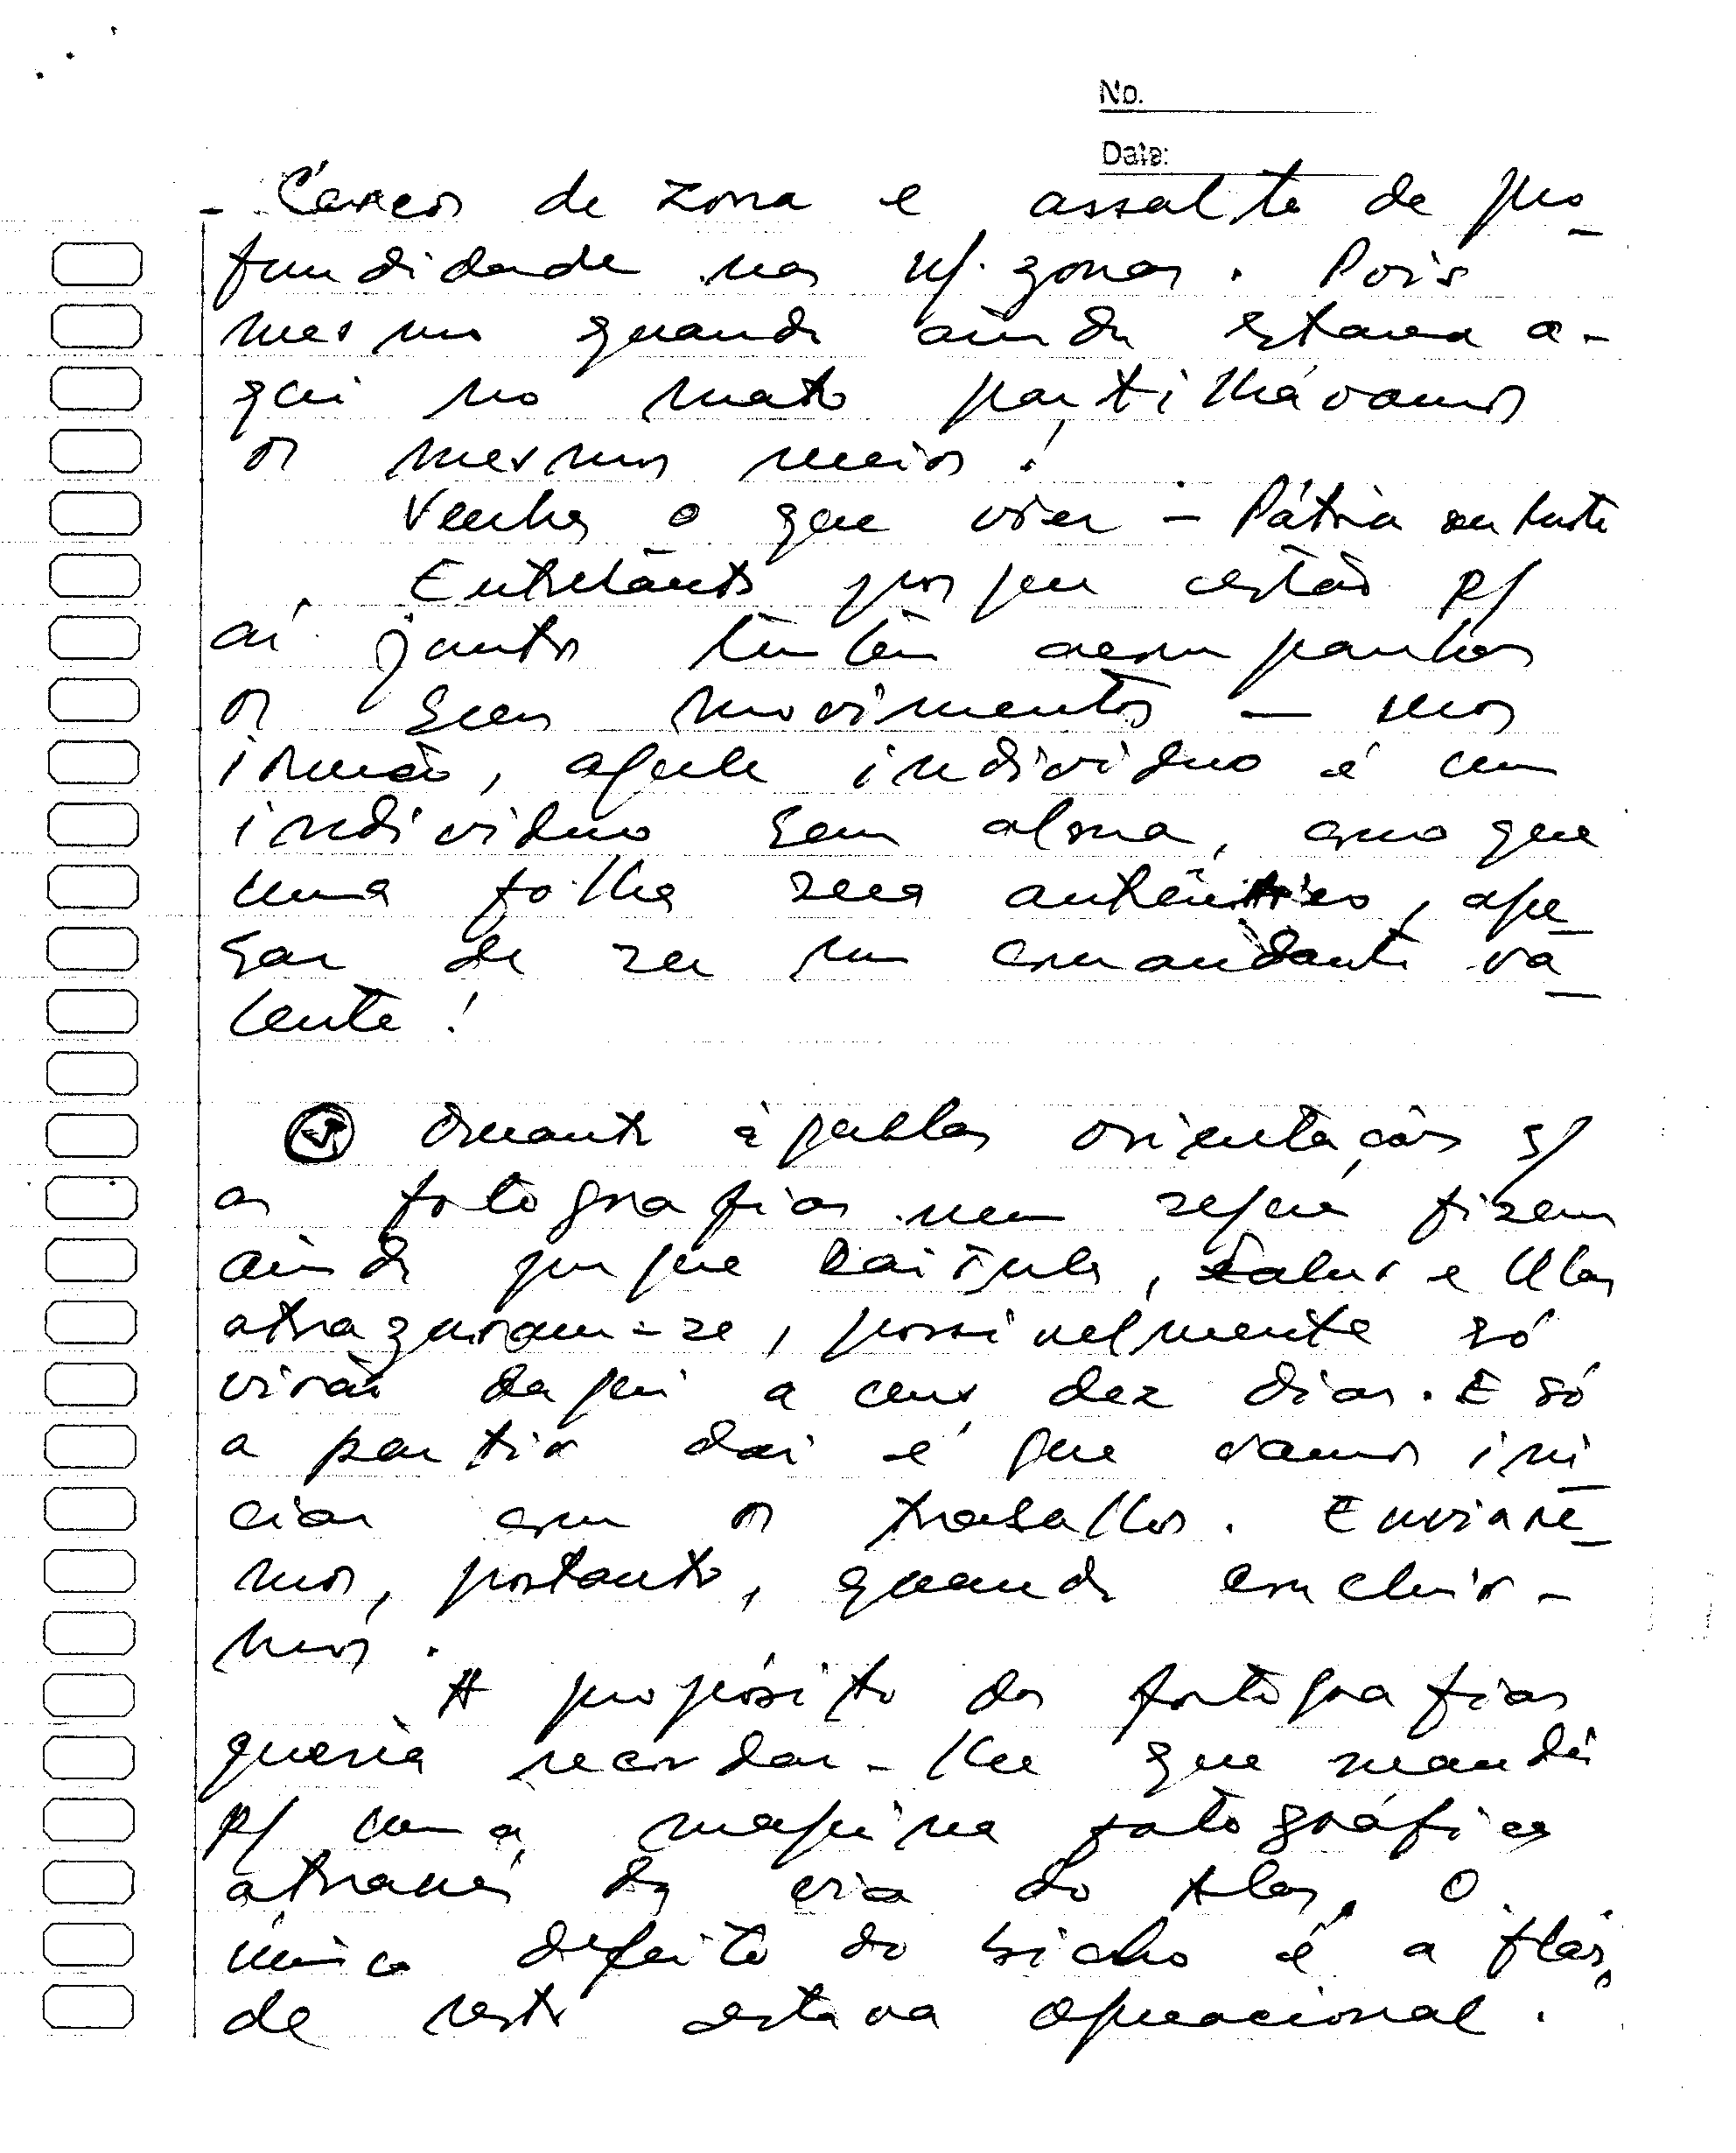 No.
Date:
- Cercos de zona e assalto de pro_
fundidade nas n/. zonas. Pois
mesmo quando ainda estava a-
qui no mato partilhávamos
os mesmos meios!
Venha o que vier - Pátria ou Morte
Entretanto porque estão p/
aí juntos tentem acompanhar
os seus movimentos - meu
irmão, aquele individuo é um
individuo sem alma, como que
uma folha seca autêntico, ape_
sar de ser um comandante va_
lente!
Quanto àquelas orientações s/
as fotografias nem sequer fizemos
ainda porque e Alas
atrazaram-se, possivelmente só
virão daqui a uns dez dias. E só
a partir daí é que vamos ini_
ciar com os trabalhos. Enviare_
mos, portanto, quando concluir-
mos.
A propósito das fotografias
queria recordar-lhe que mandei
p/ uma máquina fotográfica
através da via do Alas. O
único defeito do bicho é a flas,
de resto estava operacional.